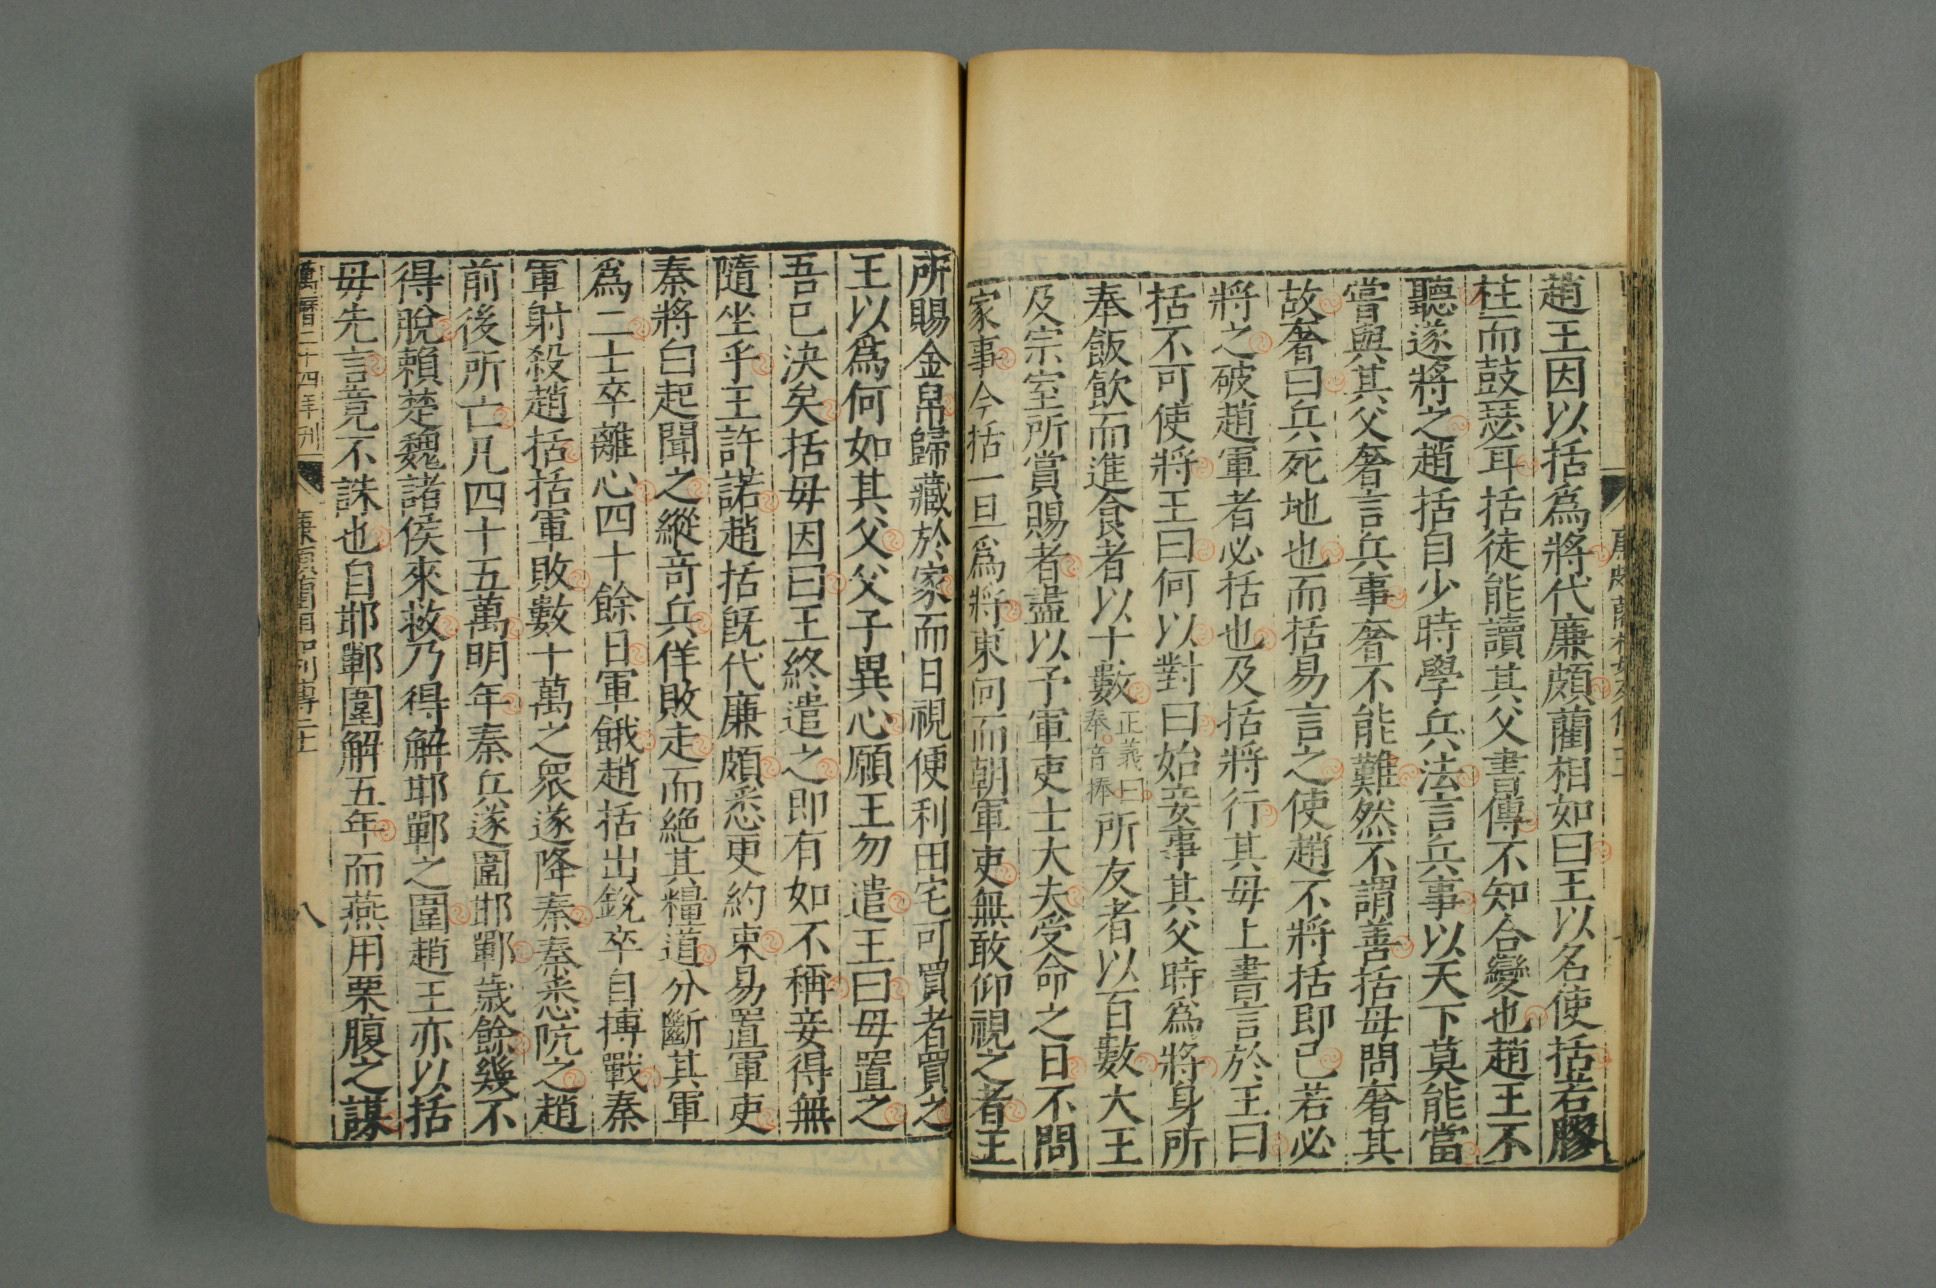 趙王因以括爲將代廉頗藺相如曰王以名使括若膠
柱而鼓瑟耳括徒能讀其父書傳不知合變也趙王不
聽遂將之趙括自少時學兵法言兵事以天下莫能當
嘗與其父奢言兵事奢不能難然不謂善括母問奢其
故奢曰兵死地也而括易言之使趙不將括即已若必
將之破趙軍者必括也及括將行其母上書言於王曰
括不可使將王曰何以對曰始妾事其父時爲將身所
奉飯飲而進食者以十數正義曰奉音捧所友者以百數大王
及宗室所賞賜者盡以予軍吏士大夫受命之日不問
家事今括一旦爲將東向而朝軍吏無敢仰視之者王
所賜金帛歸藏於家而日視便利田宅可買者買之
王以爲何如其父父子異心願王勿遣王曰母置之
吾已決矣括母因曰王終遣之即有如不稱妾得無
隨坐乎王許諾趙括旣代廉頗悉更約束易置軍吏
秦將白起聞之縱奇兵佯敗走而絕其糧道分斷其軍
爲二士卒離心四十餘日軍餓趙括出銳卒自搏戰秦
軍射殺趙括括軍敗數十萬之眾遂降秦秦悉阬之趙
前後所亡凡四十五萬明年秦兵遂圍邯鄲歲餘幾不
得脫賴楚魏諸侯來救乃得解邯鄲之圍趙王亦以括
母先言竟不誅也自邯鄲圍解五年而燕用栗腹之謀
萬曆二十四年刊 廉頗藺相如列傳二十一 八